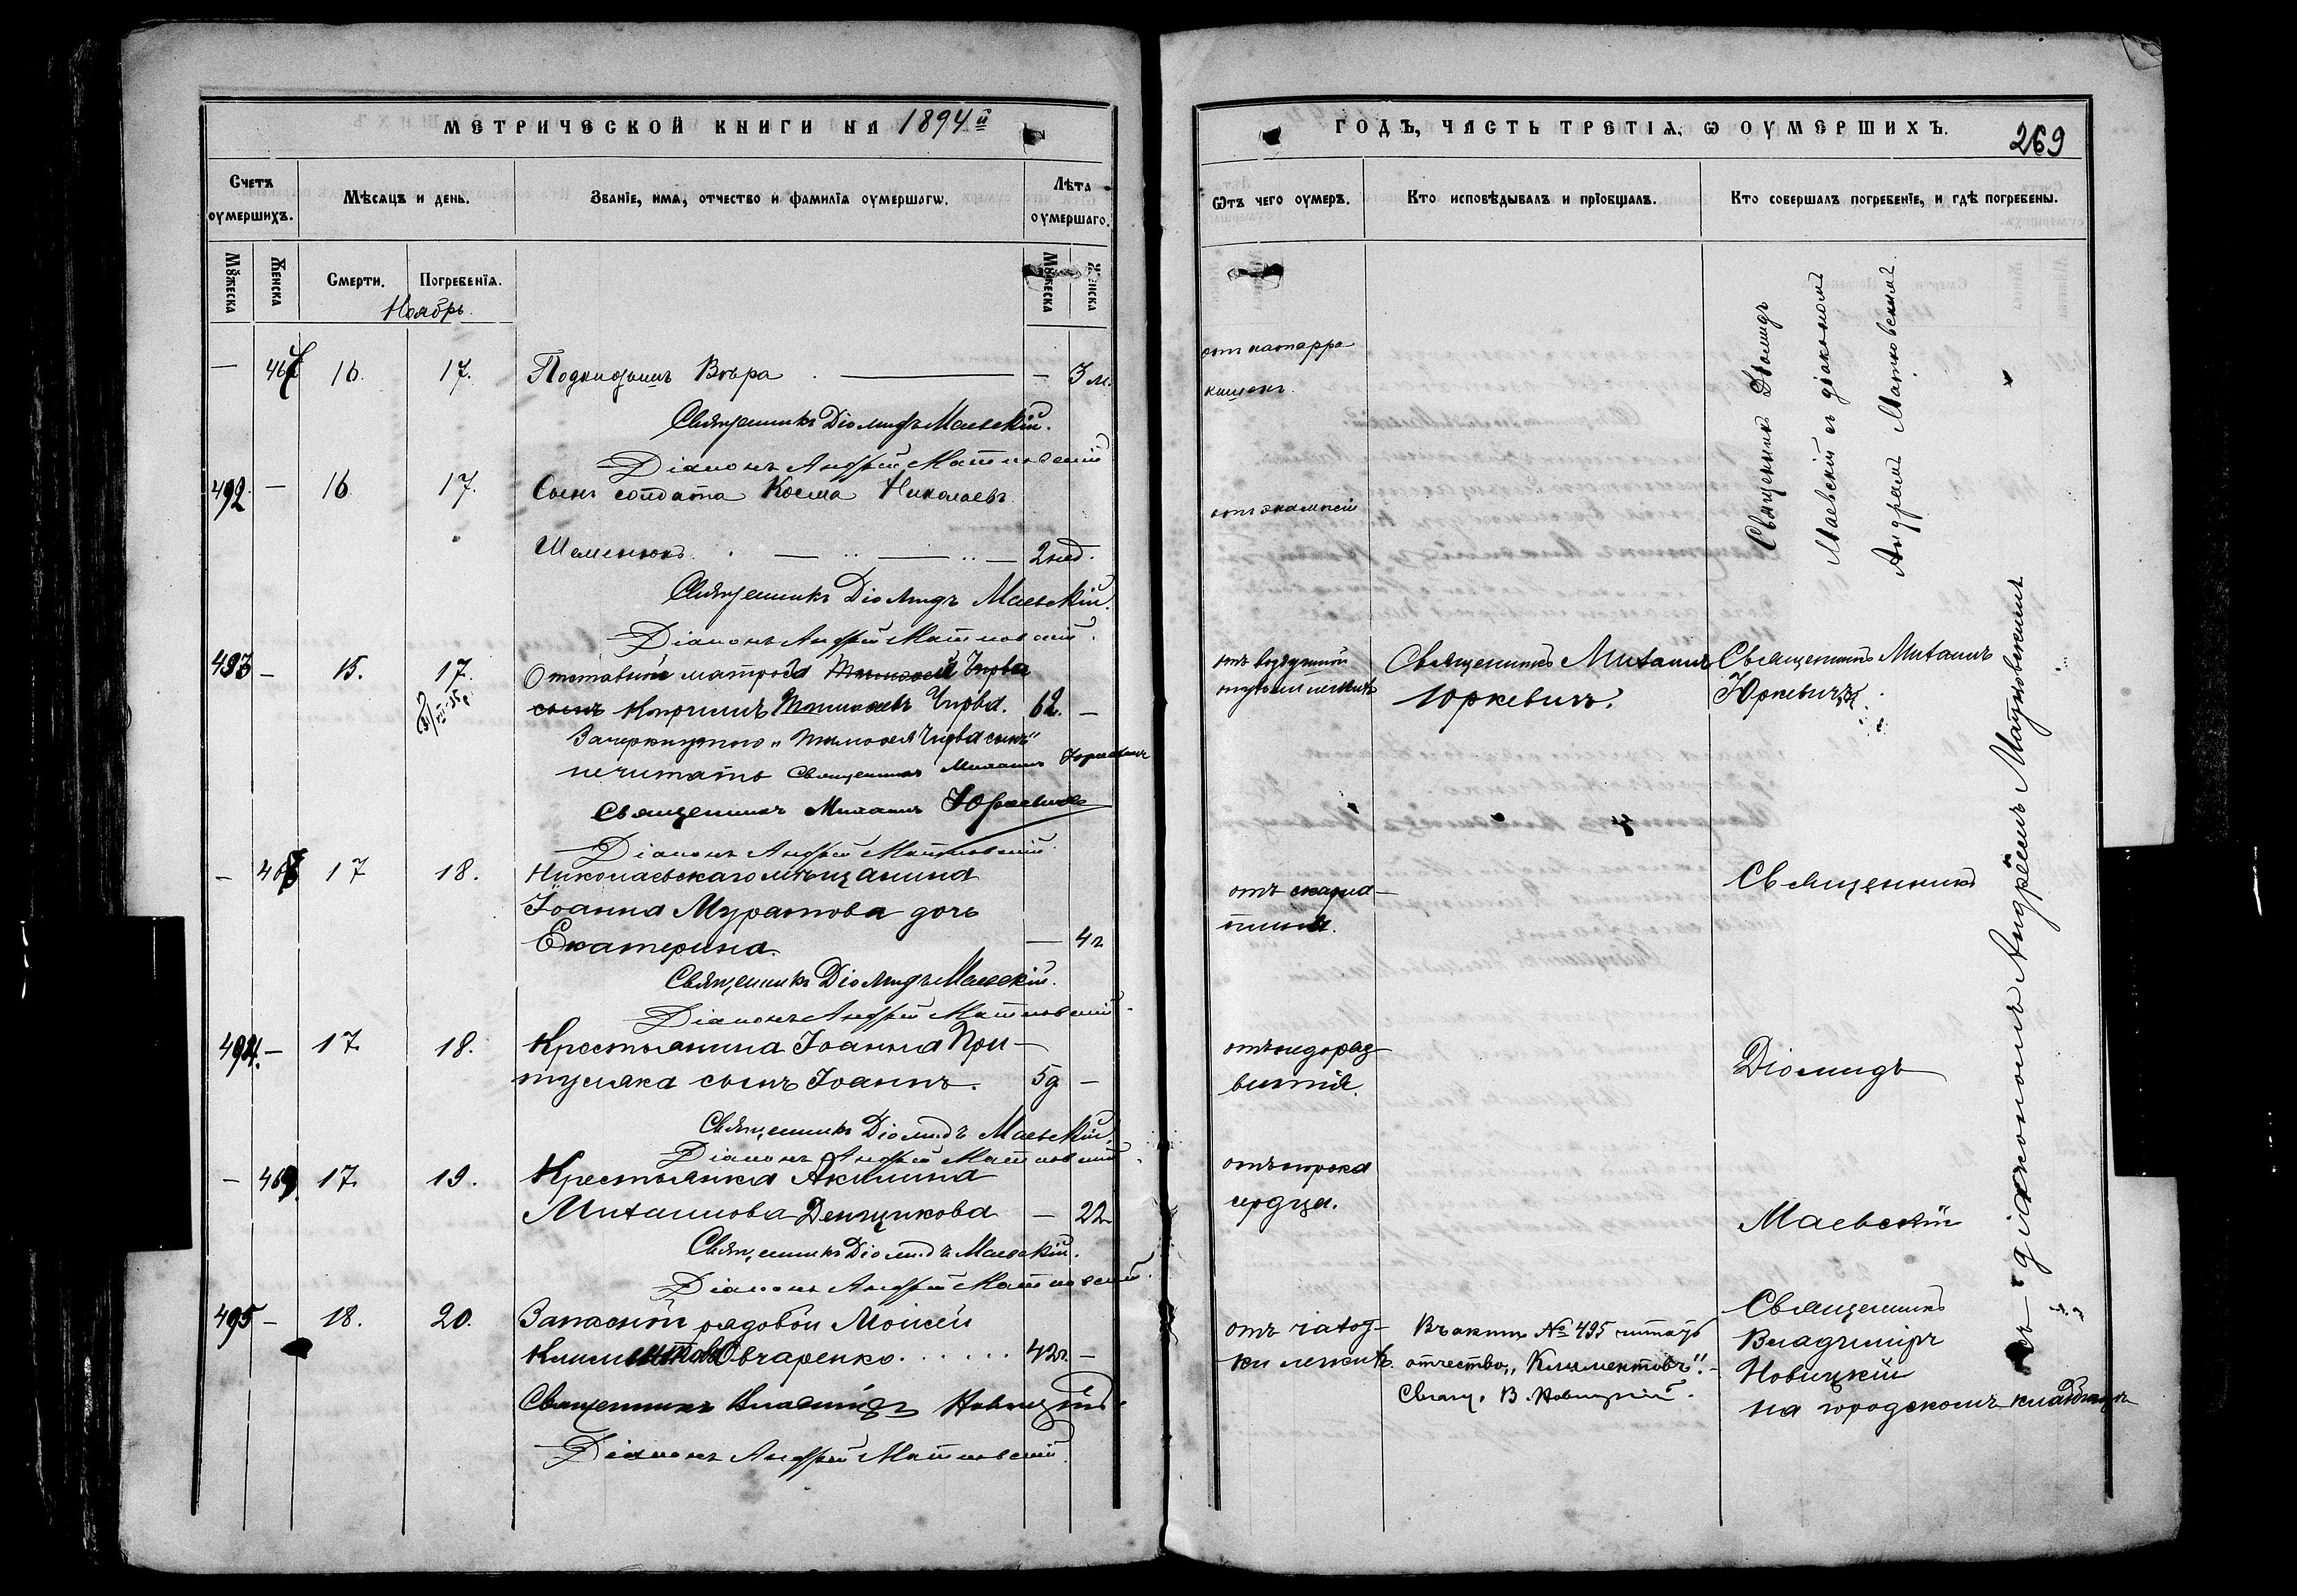 МЕТРИЧЕСКОЙ КНИГИ НА 1894й
Счетъ оумершихъ.
Мѣсяцъ и день.
Званіе, имя, отчество и фамилія оумершагѡ.
Лѣта оумершаго.
Мꙋжеска
Женска
Смерти.
Погребенія.
Мꙋжеска
Женска
Ноябрь.
— 467 16. 17. Подкидышъ Вѣра — 3 м.
Священникъ Діомидъ Маевскій.
Діаконъ Андрей Матковскій
492. — 16. 17. Сынъ солдата Косма Николаевъ
Шеменюкъ. — 2 нед.
Священникъ Діомидъ Маевскій.
Діаконъ Андрей Матковскій.
493 — 15. 17. Отставной матроса Тимофей Чирва
сынъ Кириллъ Тимофеевъ Чирва. 62. —
Зачеркнутого „Тимофея Чирва сынъ"
нечитать Священникъ Михаилъ Юркевичъ
Священникъ Михаилъ Юркевичъ
Діаконъ Андрей Матковскій
— 468 17 18. Николаевскаго мѣщанина
Іоанна Муратова дочь
Екатерина. — 4 г
Священникъ Діомидъ Маевскій.
Діаконъ Андрей Матковскій.
494. — 17. 18. Крестьянина Іоанна При-
туляка сынъ Іоаннъ. 5 д —
Священникъ Діомидъ Маевскій.
Діаконъ Андрей Матковскій.
— 469. 17. 19. Крестьянка Акилина
Михаилова Денщикова — 22
Священникъ Діомидъ Маевскій.
Діаконъ Андрей Матковскій.
495 — 18. 20. Запасный рядовой Моисей
Климентовъ Овчаренко. 42 г. —
Священникъ Владиміръ Новицкій.
Діаконъ Андрей Матковскій.
ГОДЪ, ЧАСТЬ ТРЕТІЯ, Ѡ ОУМЕРШИХЪ.
269
Ѿтъ чего оумеръ.
Кто исповѣдывалъ и пріобщалъ.
Кто совершалъ погребеніе, и гдѣ погребены.
отъ катарра
кишекъ.
Священникъ Діомидъ
Маевскій съ діакономъ
Андреемъ Матковскимъ.
отъ эклампсіи
отъ воздушной
опухоли легкихъ
Священникъ Михаилъ
Юркевичъ.
Священникъ Михаилъ
Юркевичъ
отъ скарла-
тины.
Священникъ
отъ недораз-
витія.
Діомидъ
отъ порока
сердца.
Маевскій
отъ чахот-
ки легкихъ.
Въ актѣ № 495 читать
отчество „Климентовъ". —
Свящ. В. Новицкій.
Священникъ
Владиміръ
Новицкій
на городскомъ кладбищѣ
съ діакономъ Андреемъ Матковскимъ